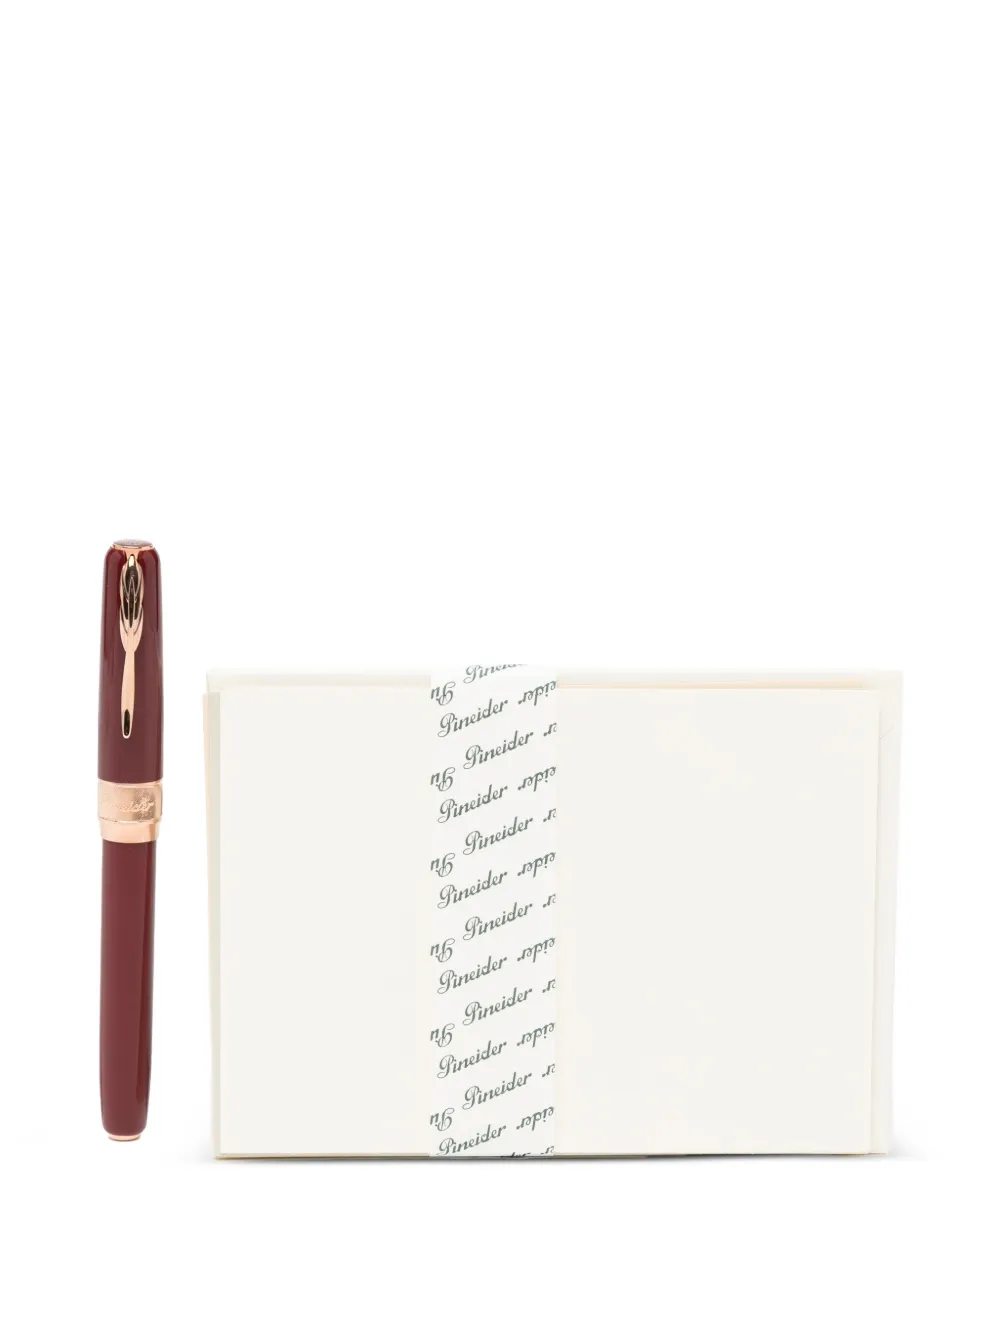 Pineider
Pineider
Pineider
Pineider
Pineider
Pineider
Pineider
Pineider
Pineider
Pineider
Pineider
Pineider
Pineider